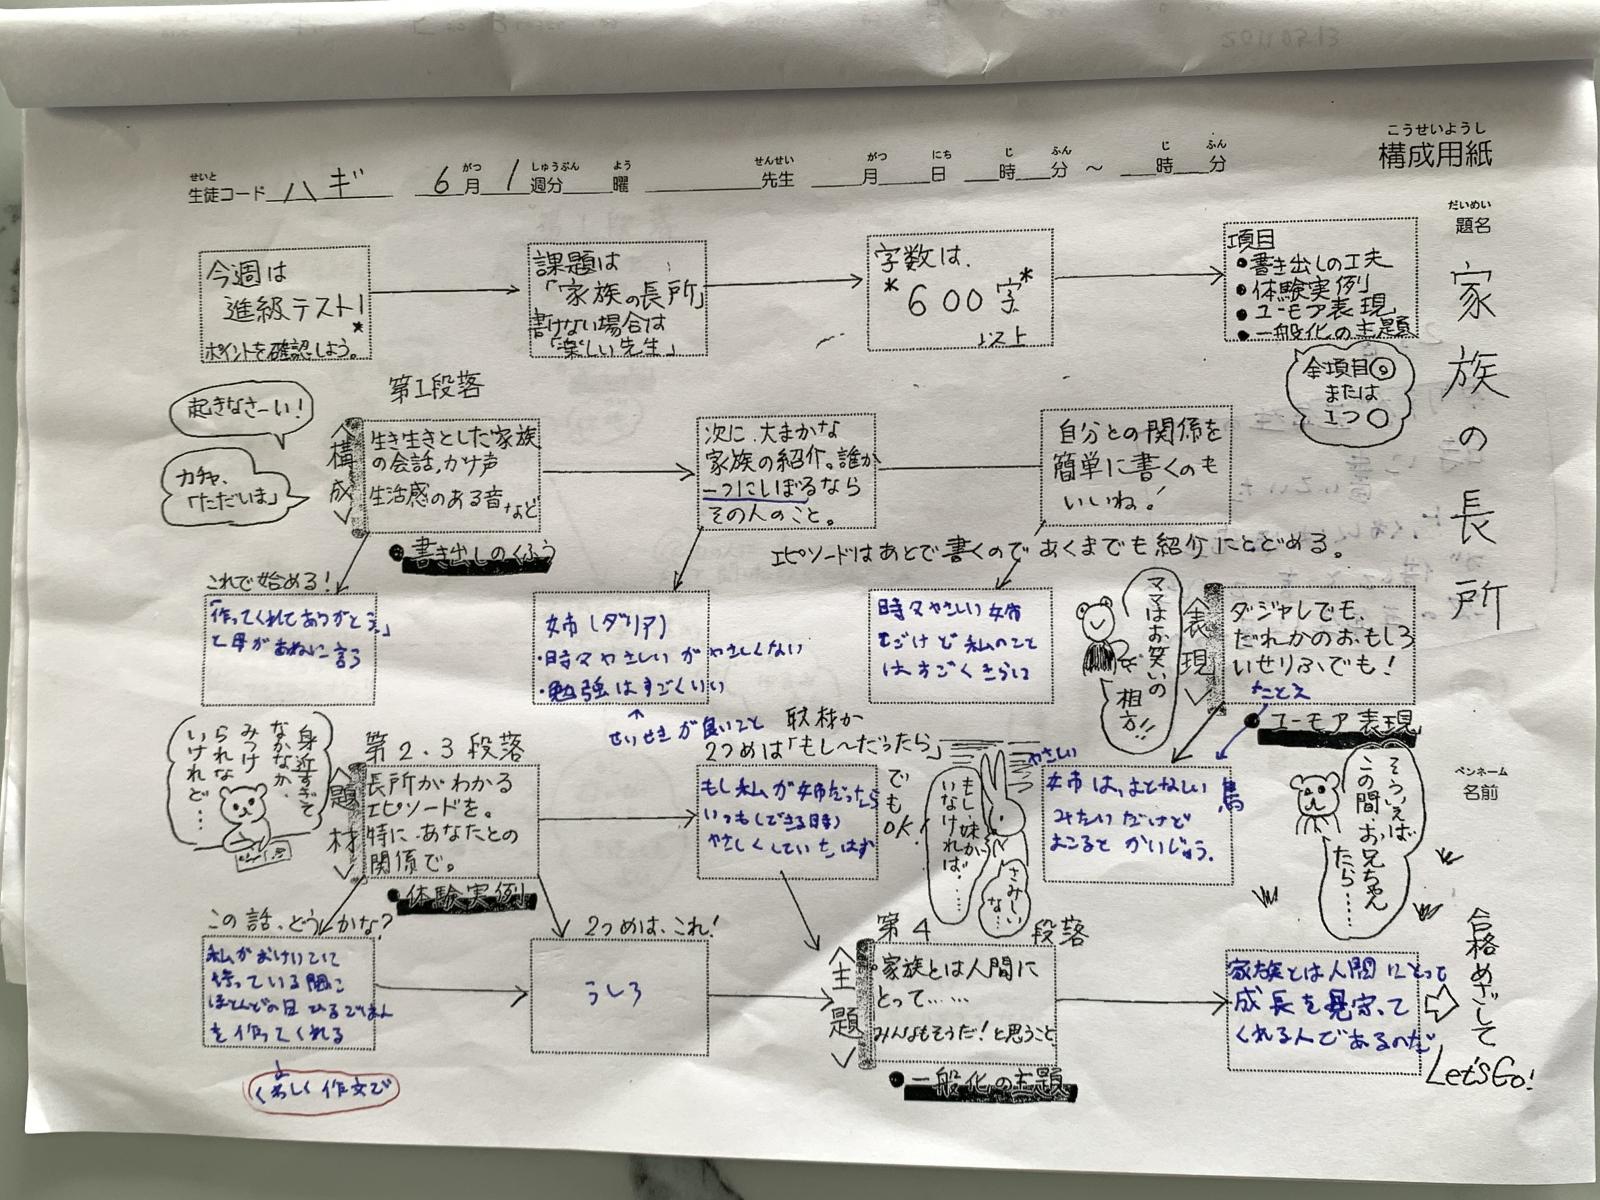 こうせいようし
構成用紙
せいと がつ しゅうぶん よう せんせい がつ にち じ ふん じ ふん
生徒コード ハギ 6月 1週分 曜 先生 月 日 時 分 ～ 時 分
だいめい
題名
家族の長所
今週は
進級テスト!
*
ポイントを確認しよう。
課題は
「家族の長所」
書けない場合は
「楽しい先生」
字数は、
*600字*
以上
項目
●書き出しの工夫
●体験実例
●ユーモア表現
●一般化の主題
全項目◎
または
1つ○
第1段落
起きなさーい!
カチャ、
「ただいま」
<構成>
生き生きとした家族
の会話、かけ声
生活感のある音など
●書き出しのくふう
次に、大まかな
家族の紹介。誰か
一つにしぼるなら
その人のこと。
自分との関係を
簡単に書くのも
いいね!
エピソードはあとで書くのであくまでも紹介にとどめる。
これで始める!
「作ってくれてありがとう。」
と母がおねに言う
姉(ダリア)
・時々やさしいがやさしくない
・勉強はすごくいい
↑
せいせきが良いこと
時々やさしい姉
だけど私のこと
はすごくきらい
ママはお笑いの
相方!!
<表現>
ダジャレでも、
だれかのおもしろ
いせりふでも!
たとえ
●ユーモア表現
身近すぎて
なかなか、
みつけ
られな
いけれど…
第2.3段落
<題材>
長所がわかる
エピソードを。
特に、あなたとの
関係で。
●体験実例
取材か
2つめは「もし〜だったら」
でもOK!
もし私が姉だったら
いつも(できる時)
やさしくしていたはず
もし、妹が
いなければ……
さみしい
な…
やさしい
姉は、おとなしい馬
みたいだけど
おこるとかいじゅう。
そういえば
この間、お兄ちゃん
たら……
ペンネーム
名前
この話、どうかな?
私がおけいこに
待っている間に
ほとんどの日ひるごはん
を作ってくれる
くわしく作文で
2つめは、これ!
うしろ
第4段落
<主題>
・家族とは人間に
とって……
みんなもそうだ!と思うこと
●一般化の主題
家族とは人間にとって
成長を見守って
くれる人であるのだ
合格めざして
Let's Go!